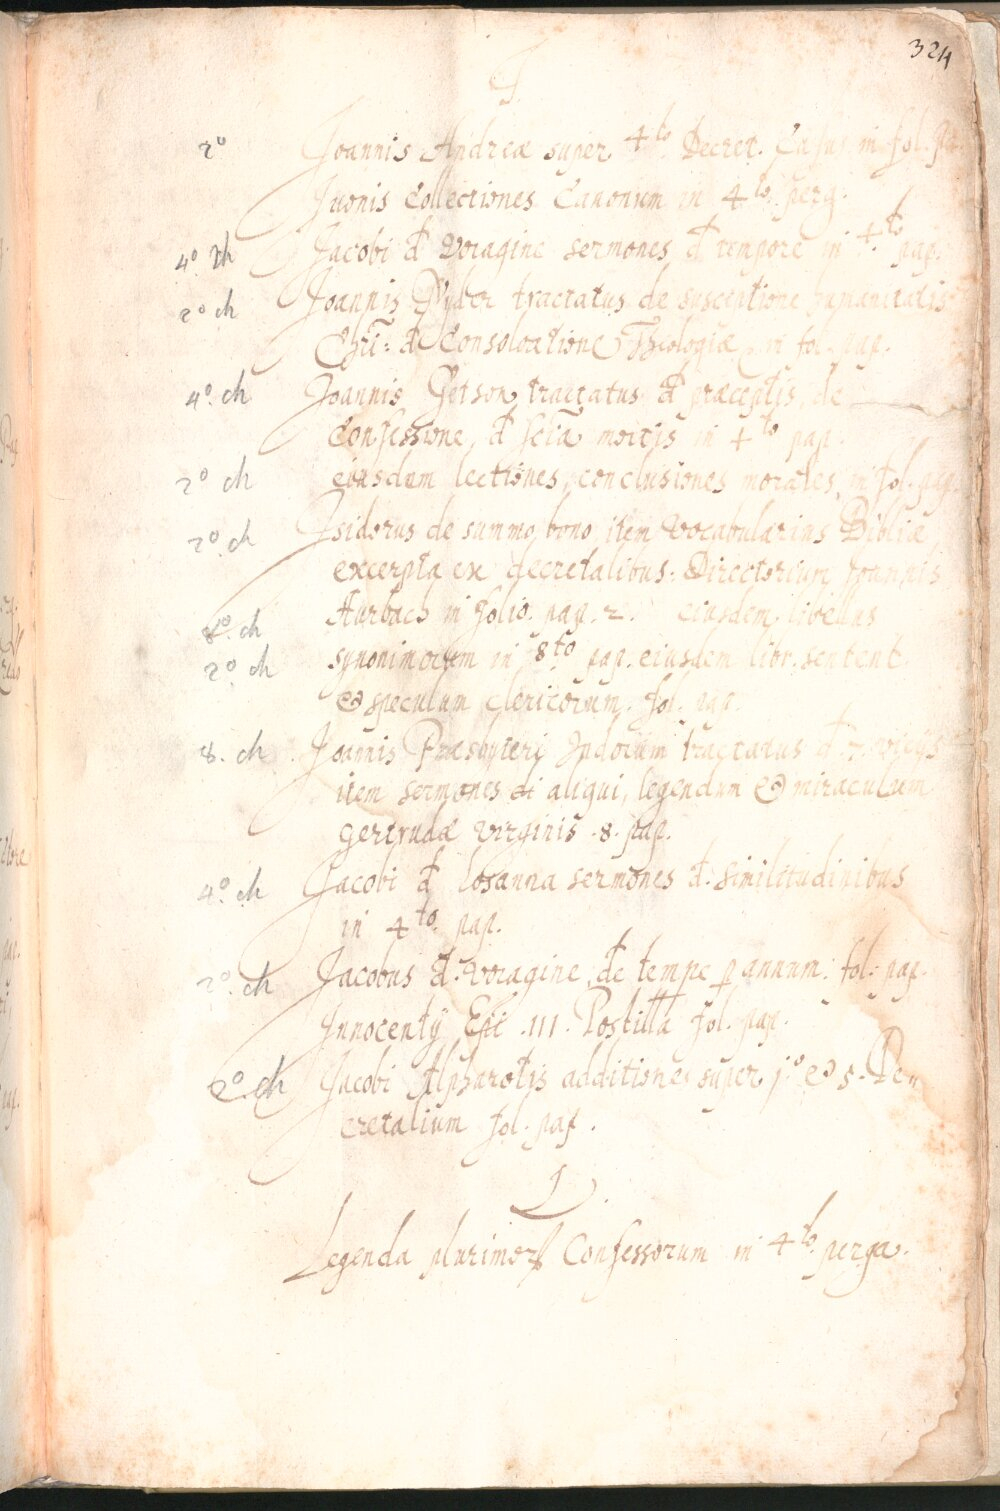 324
J.
2º Joannis Andreæ super 4to. Decret. Casus in fol. per.
Juonis Collectiones Canonum in 4to. perg.
4º. ch Jacobi d Voragine sermones d tempore in 4.to pap.
2º ch Joannis Nyder tractatus de susceptione humanitatis
Chri: & Consolatione Theologiæ in fol. pap.
4º. ch Joannis Gerson tractatus d præceptis, de
Confessione, d scia mortis in 4to pap.
2º ch eiusdem lectiones, conclusiones morales, in fol. pap.
2º. ch Isidorus de summo bono, item Vocabularius Bibliæ
excerpta ex decretalibus: Directorium Joannis
Aurbach in folio. pap. 2. eiusdem libellus
8º. ch synonimorum in 8to. pap. eiusdem libr. sentent.
2º ch & speculum clericorum. fol. pap.
8. ch Joannis Præsbyteri Indorum tractatus d 7. vitijs
item sermones aliqui, legendum & miraculum
gertrudæ virginis .8. pap.
4º. ch Jacobi d Losanna sermones d. similitudinibus
in 4to. pap.
2º. ch Jacobus d. Voragine de tempe p annum. fol. pap.
Innocentij Epi .III. Postilla fol. pap.
2º. ch Jacobi Alpharotis additiones super j.º & 5. De„
cretalium fol. pap.
L
Legenda plurimorꝝ Confessorum in 4to. perga.